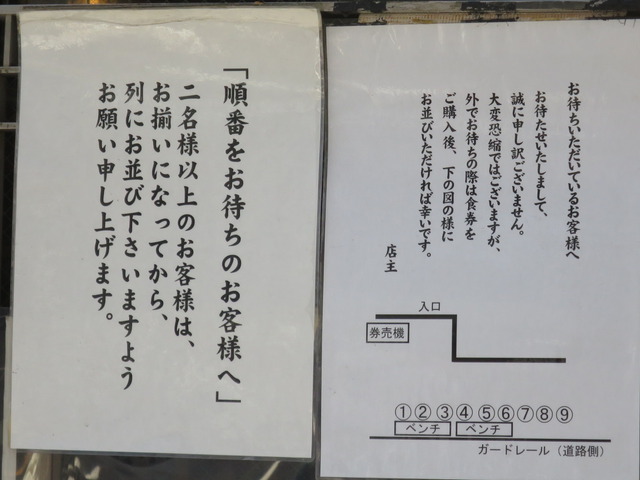 「順番をお待ちのお客様へ」
二名様以上のお客様は、
お揃いになってから、
列にお並び下さいますよう
お願い申し上げます。
お待ちいただいているお客様へ
お待たせいたしまして、
誠に申し訳ございません。
大変恐縮ではございますが、
外でお待ちの際は食券を
ご購入後、下の図の様に
お並びいただければ幸いです。
店主
入口
券売機
①②③④⑤⑥⑦⑧⑨
ベンチ ベンチ
ガードレール（道路側）